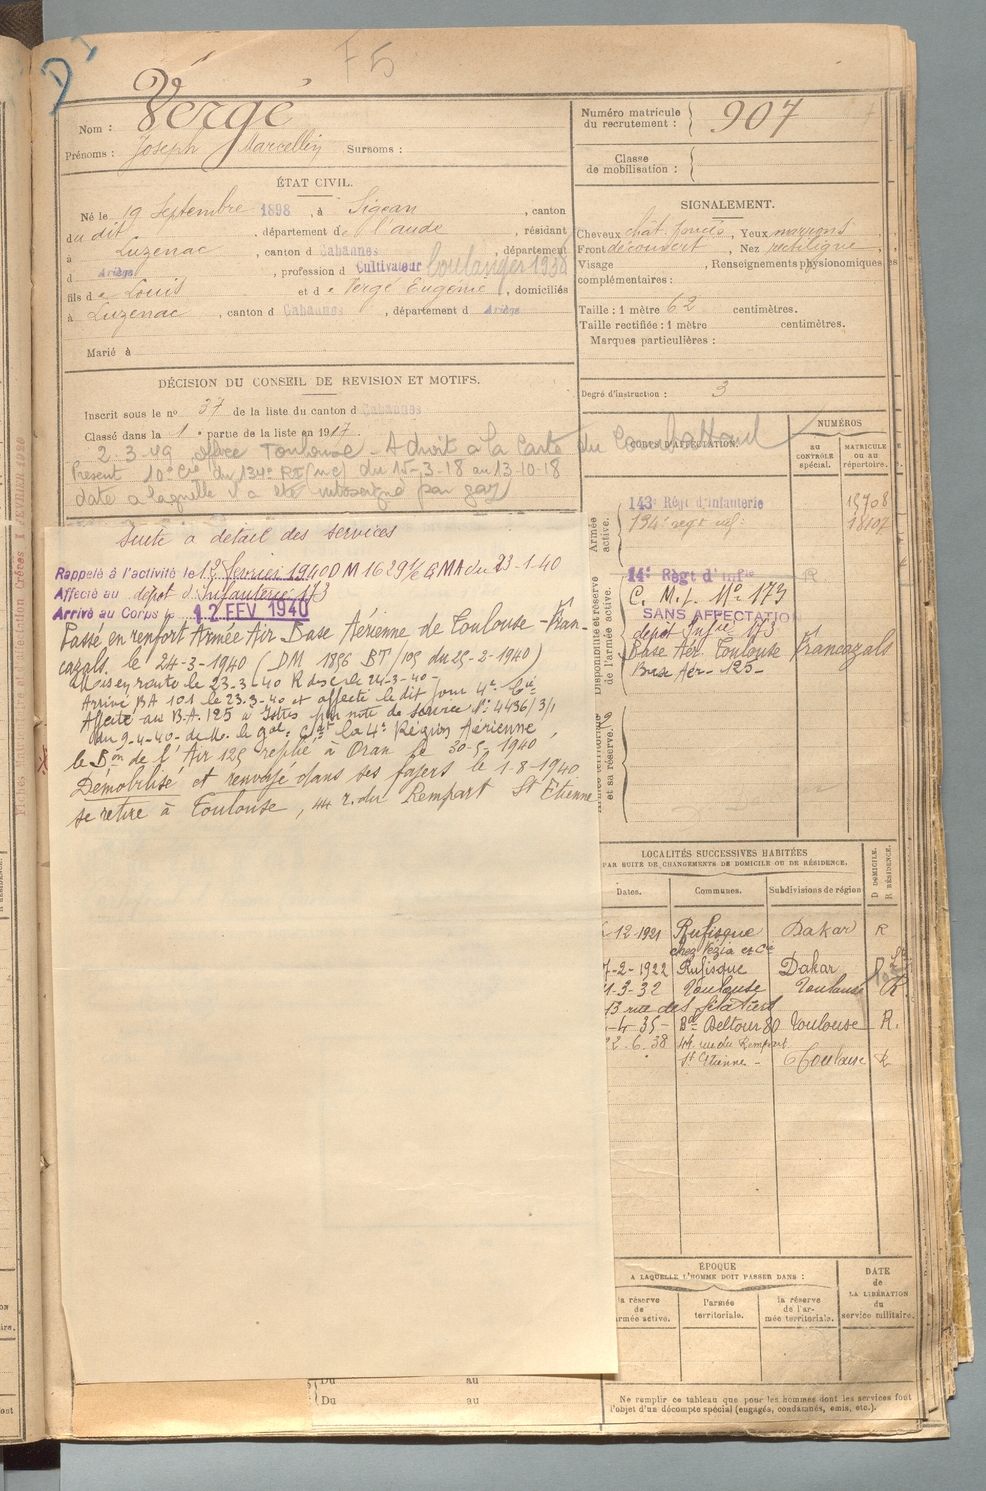 D
F5
Nom : Vergé
Prénoms : Joseph Marcellin Surnoms :
Numéro matricule du recrutement : 907
Classe de mobilisation :
ÉTAT CIVIL.
Né le 19 Septembre 1898, à Sigean, canton
du dit, département de l'aude, résidant
à Luzenac, canton d Cabannes, département
d Ariège, profession d Cultivateur boulanger 1938
fils de Louis et de Vergé Eugénie, domiciliés
à Luzenac, canton d Cabannes, département d Ariège
Marié à
SIGNALEMENT.
Cheveux chât. foncés, Yeux marrons
Front découvert, Nez rectiligne
Visage , Renseignements physionomiques
complémentaires :
Taille : 1 mètre 62 centimètres.
Taille rectifiée : 1 mètre centimètres.
Marques particulières :
Degré d'instruction : 3
DÉCISION DU CONSEIL DE REVISION ET MOTIFS.
Inscrit sous le nº 37 de la liste du canton d Cabannes
Classé dans la 1e partie de la liste en 1917.
2-3-49 office Toulouse - A droit à la Carte du Combattant
Présent 10e Cie du 134e RI (nc) du 15-3-18 au 13-10-18
date à laquelle il a été intoxiqué par gaz
Suite a détail des services
Rappelé à l'activité le 12 février 1940 DM 1629 EMA du 23-1-40
Affecté au dépot d'Infanterie 173
Arrivé au Corps le 12 FEV 1940
Passé en renfort Armée Air Base Aérienne de Toulouse - Fran-
cazals. le 24-3-1940 (DM 1896 BT/105 du 25-2-1940)
Mis en route le 23-3-40 R du c le 24-3-40 -
Arrivé BA 101 le 23-3-40 et affecté le dit jour 4e Cie
Affecté au B.A. 125 à Istres par note de service Nº 4436/3/1
du 9-4-40 - de M. le gal. Ct la 4e Région Aérienne
le Bon de l'Air 125 replié à Oran le 30-5-1940,
Démobilisé et renvoyé dans ses foyers le 1-8-1940
se retire à Toulouse, 44 r. du Rempart St Etienne
CORPS D'AFFECTATION.
NUMÉROS
AU CONTRÔLE spécial.
MATRICULE OU AU répertoire.
Armée active.
143e Régt d'Infanterie 15708
134e regt inf. 18107
Disponibilité et réserve de l'armée active.
14e Régt d'Infie R
C. M. I. Nº 173
SANS AFFECTATION
dépot Infie 173
Base Aér. Toulouse Francazals
Base Aér - 125 -
Armée territoriale et sa réserve.
LOCALITÉS SUCCESSIVES HABITÉES
PAR SUITE DE CHANGEMENTS DE DOMICILE OU DE RÉSIDENCE.
Dates. Communes. Subdivisions de région
D DOMICILE. R RÉSIDENCE.
12-1921 Rufisque Dakar R
chez Vezia et Cie
7-2-1922 Rufisque Dakar
1-3-32 Toulouse Toulouse R
13 rue des filatiers
-4-35- Bd Deltour 80 Toulouse R.
2.6.38 44 rue du Rempart
St Etienne - Toulouse R
ÉPOQUE
A LAQUELLE L'HOMME DOIT PASSER DANS :
la réserve de l'armée active.
l'armée territoriale.
la réserve de l'armée territoriale.
DATE de LA LIBÉRATION du service militaire.
Du au
Du au
Ne remplir ce tableau que pour les hommes dont les services font
l'objet d'un décompte spécial (engagés, condamnés, omis, etc.).